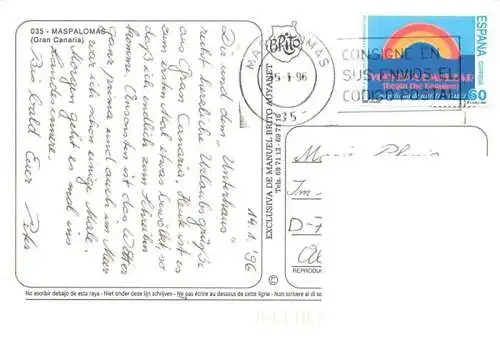 035 - MASPALOMAS
(Gran Canaria)
14.1.'96
Die und dem "Unterhaus"
herzliche Urlaubsgrüße
aus Gran Canaria. Heut ist es
zum ersten Mal etwas bewölkt, so
daß ich endlich zum Schreiben
komme. Ansonsten ist das Wetter
ganz prima und auch im Meer
war ich schon einige Male.
Morgen geht es mal ins
Landesinnere.
Bis bald Euer
BRITO
EXCLUSIVA DE MANUEL BRITO AUYANET
MASPALOMAS
-1-96
35
CONSIGNE EN
SUS ENVIOS EL
CODIGO POSTAL
ESPAÑA
CORREOS
60
D-7
REPRODUC
©
No escribir debajo de esta raya - Niet onder deze lijn schrijven - Ne pas écrire au dessous de cette ligne - Non scrivere al di s